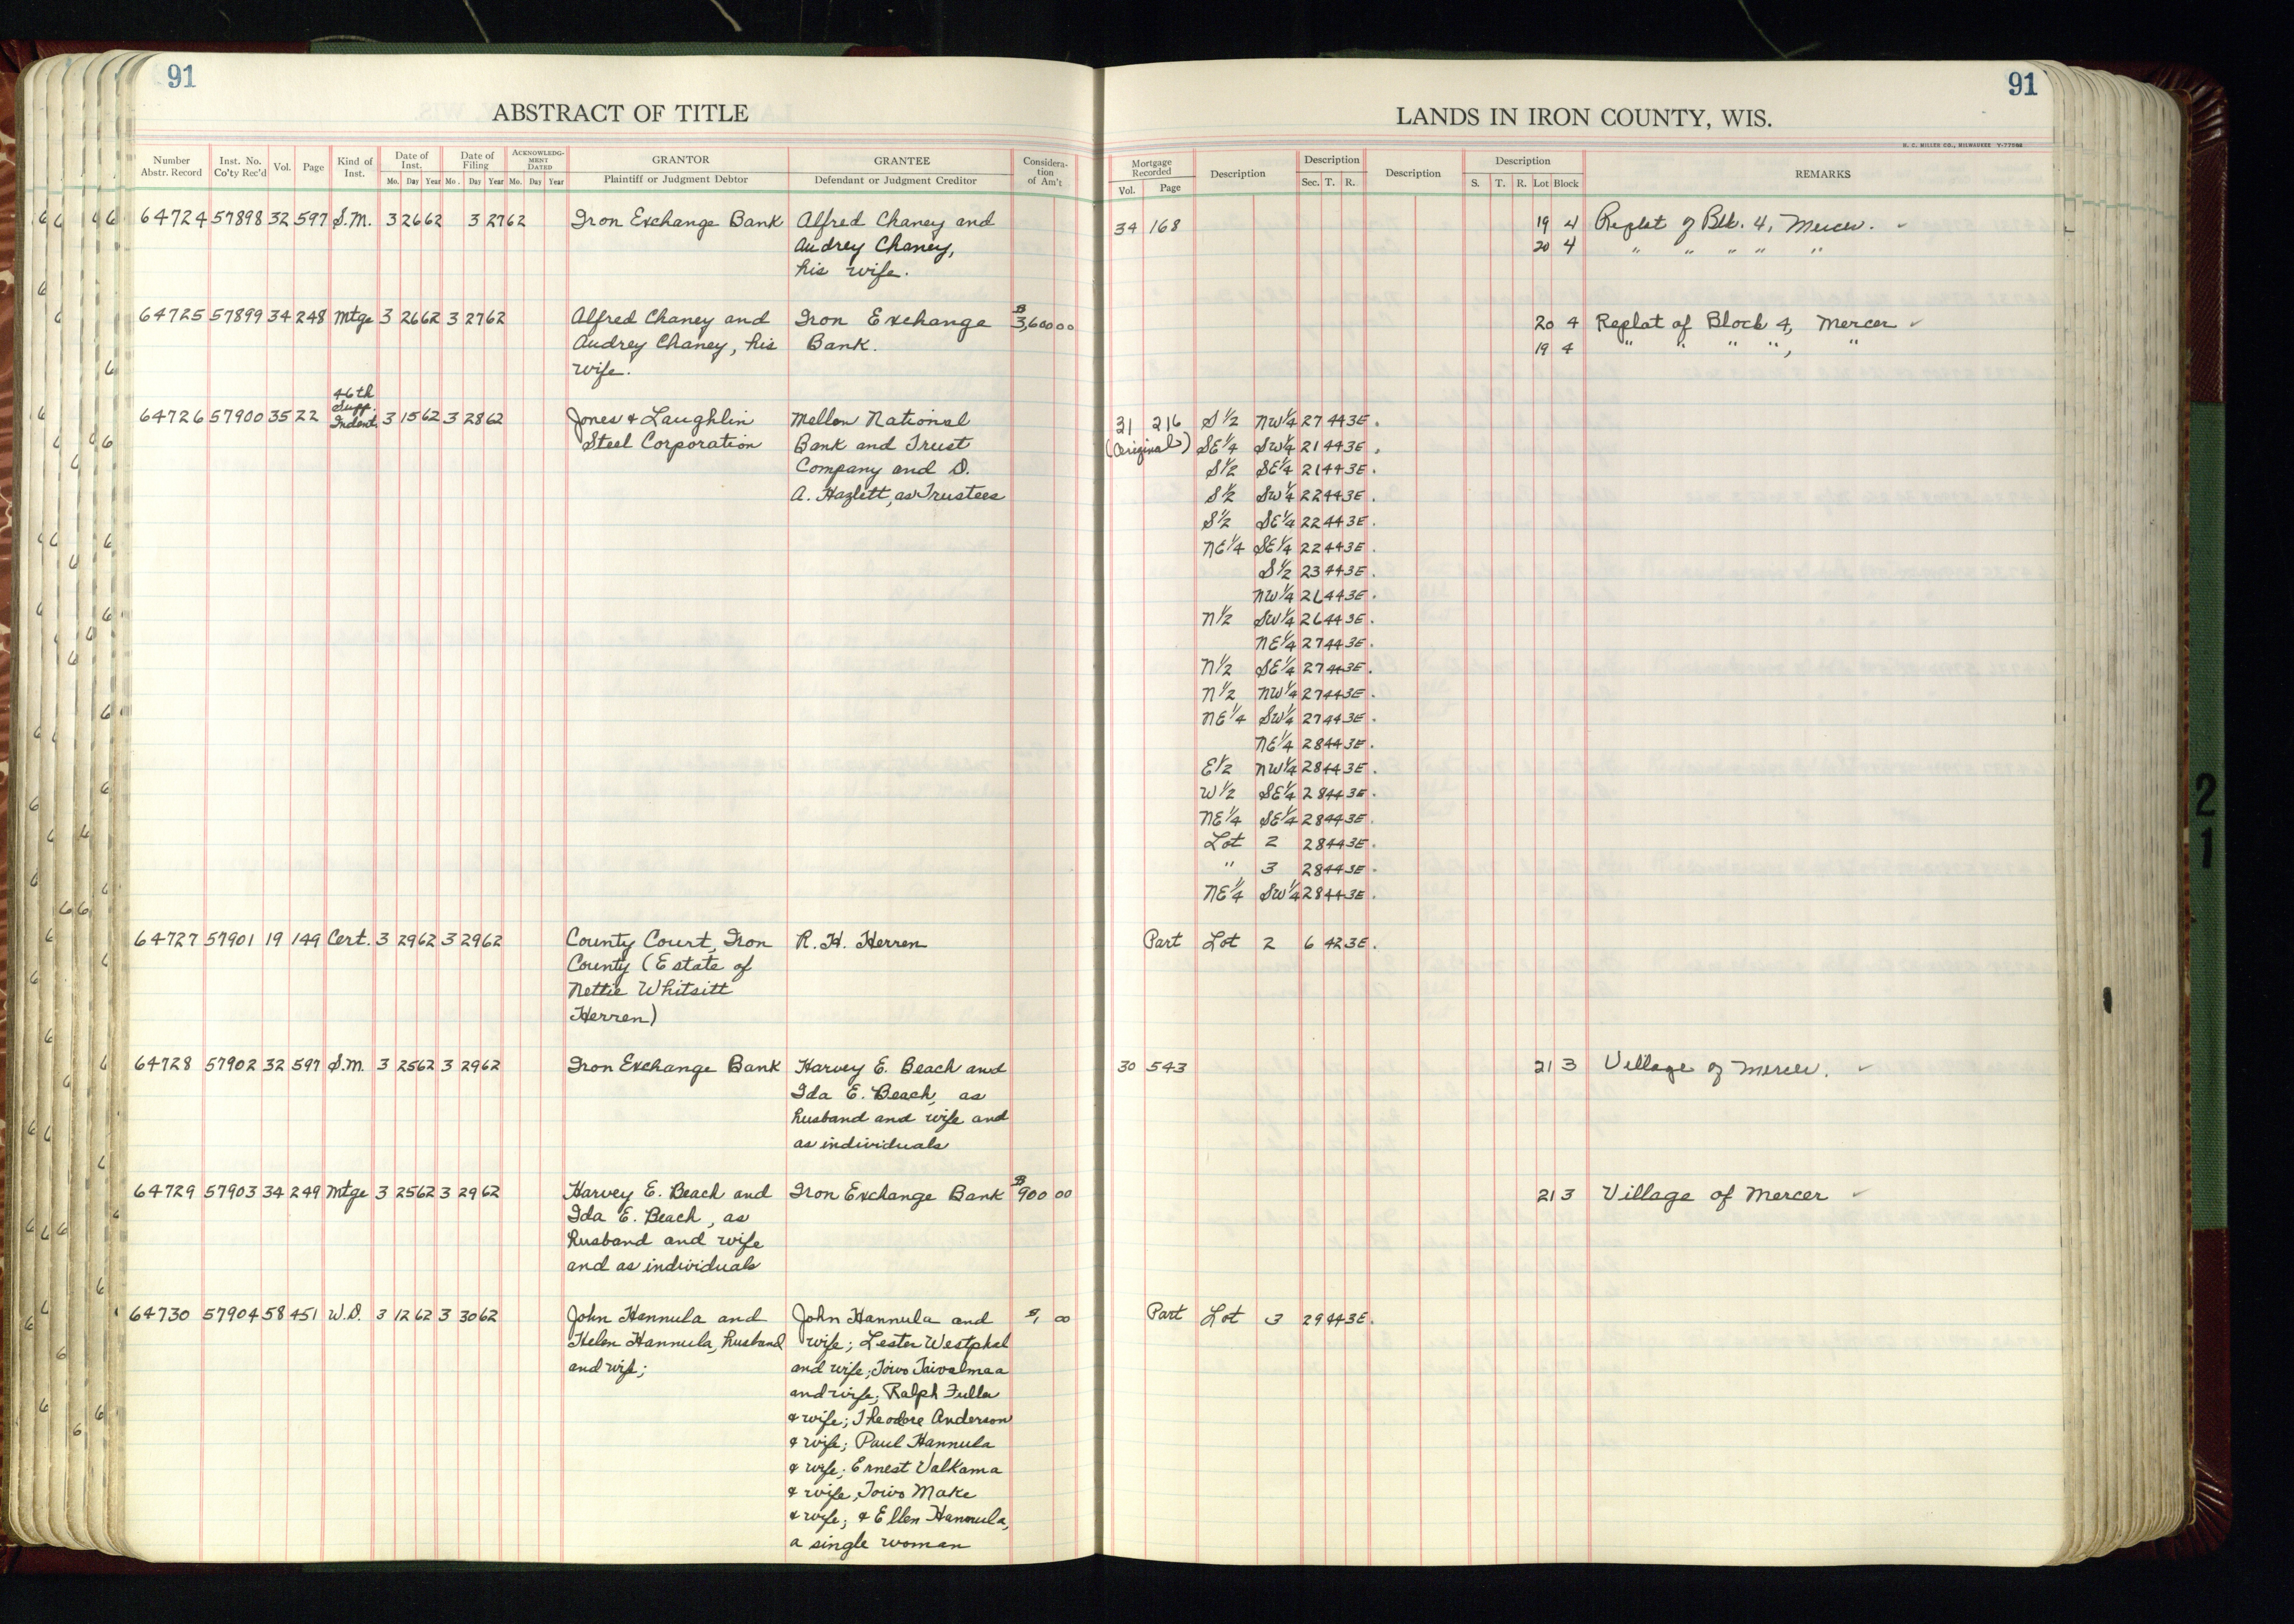 91
ABSTRACT OF TITLE
Number Abstr. Record Inst. No. Co'ty Rec'd Vol. Page Kind of Inst. Date of Inst. Mo. Day Year Date of Filing Mo. Day Year ACKNOWLEDGMENT DATED Mo. Day Year GRANTOR Plaintiff or Judgment Debtor GRANTEE Defendant or Judgment Creditor Consideration of Am't
64724 57898 32 597 S.M. 3 26 62 3 27 62 Iron Exchange Bank Alfred Chaney and
Audrey Chaney,
his wife.
64725 57899 34 248 Mtge 3 26 62 3 27 62 Alfred Chaney and Iron Exchange $3,600 00
Audrey Chaney, his Bank.
wife.
46th
Supp.
64726 57900 35 22 Indent 3 15 62 3 28 62 Jones & Laughlin Mellon National
Steel Corporation Bank and Trust
Company and D.
A. Hazlett, as Trustees
64727 57901 19 149 Cert. 3 29 62 3 29 62 County Court, Iron R. H. Herren
County (Estate of
Nettie Whitsitt
Herren)
64728 57902 32 597 S.M. 3 25 62 3 29 62 Iron Exchange Bank Harvey E. Beach and
Ida E. Beach, as
husband and wife and
as individuals
64729 57903 34 249 Mtge 3 25 62 3 29 62 Harvey E. Beach and Iron Exchange Bank $900 00
Ida E. Beach, as
husband and wife
and as individuals
64730 57904 58 451 W.D. 3 12 62 3 30 62 John Hannula and John Hannula and $1, 00
Helen Hannula, husband wife; Lester Westphal
and wife; and wife; Toivo Taivalmaa
and wife; Ralph Fuller
& wife; Theodore Anderson
& wife; Paul Hannula
& wife; Ernest Valkama
& wife, Toivo Make
& wife; & Ellen Hannula,
a single woman
91
LANDS IN IRON COUNTY, WIS.
H. C. MILLER CO., MILWAUKEE
Mortgage Recorded Vol. Page Description Description Sec. T. R. Description Description S. T. R. Lot Block REMARKS
34 168 19 4 Replat of Blk. 4, Mercer.
20 4 " " " " "
20 4 Replat of Block 4, Mercer
19 4 " " " ", "
31 216 S 1/2 NW 1/4 27 44 3E.
(Original) SE 1/4 SW 1/4 21 44 3E.
S 1/2 SE 1/4 21 44 3E.
S 1/2 SW 1/4 22 44 3E.
S 1/2 SE 1/4 22 44 3E.
NE 1/4 SE 1/4 22 44 3E.
S 1/2 23 44 3E.
NW 1/4 26 44 3E.
N 1/2 SW 1/4 26 44 3E.
NE 1/4 27 44 3E.
N 1/2 SE 1/4 27 44 3E.
N 1/2 NW 1/4 27 44 3E.
NE 1/4 SW 1/4 27 44 3E.
NE 1/4 28 44 3E.
E 1/2 NW 1/4 28 44 3E.
W 1/2 SE 1/4 28 44 3E.
NE 1/4 SE 1/4 28 44 3E.
Lot 2 28 44 3E.
" 3 28 44 3E.
NE 1/4 SW 1/4 28 44 3E.
Part Lot 2 6 42 3E.
30 543 21 3 Village of Mercer.
21 3 Village of Mercer
Part Lot 3 29 44 3E.
21